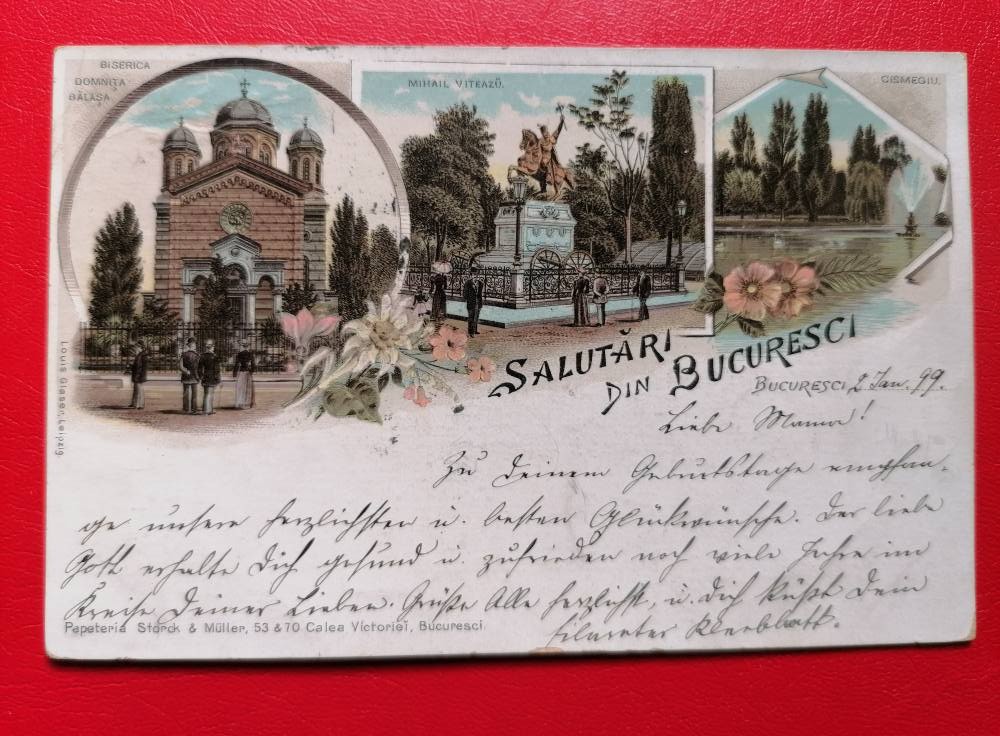 BISERICA
DOMNIȚA
BĂLAȘA
MIHAIL VITEAZŬ.
CISMEGIU.
Louis Glaser, Leipzig.
SALUTĂRI
DIN BUCURESCI
BUCURESCI, 2 Jan. 99.
Liebe Mama!
Zu Deinem Geburtstage empfan-
ge unsere herzlichsten u. besten Glückwünsche. Der liebe
Gott erhalte Dich gesund u. zufrieden noch viele Jahre im
Kreise Deiner Lieben. Grüße Alle herzlichst, u. Dich küßt Dein
Kleeblatt.
Papeteria Storck & Müller, 53 & 70 Calea Victoriei, Bucuresci.